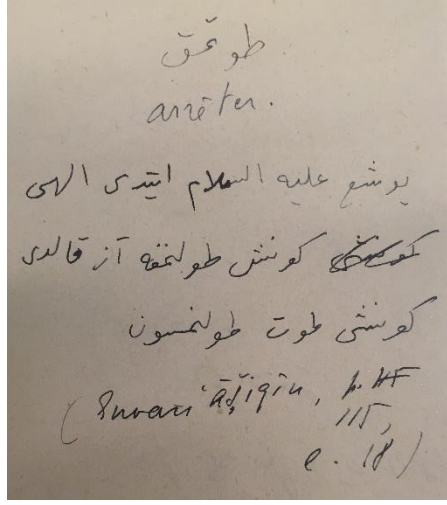 طوتمق
arrêter.
يوشع عليه السلام ايتدى الهى
كونش طولنمغه آز قالدى
كونشى طوت طولنمسون
(Envari 'āšiqīn, 
115,
l. 18)